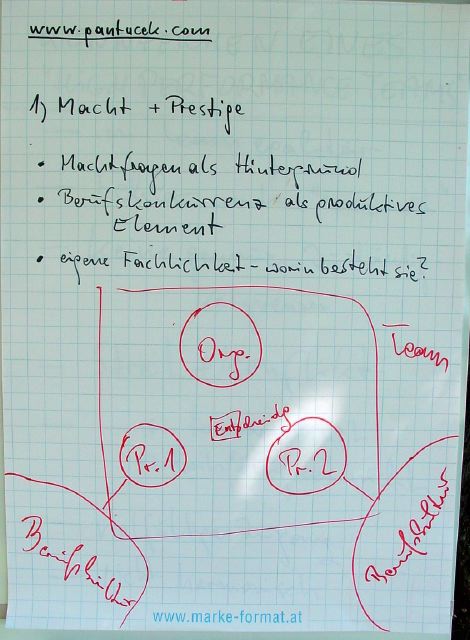 www.pantucek.com
1) Macht + Prestige
• Machtfragen als Hintergrund
• Berufskonkurrenz als produktives
Element
• eigene Fachlichkeit – worin besteht sie?
Team
Org.
Entscheidg
Pr. 1
Pr. 2
Berufskultur
Berufskultur
www.marke-format.at